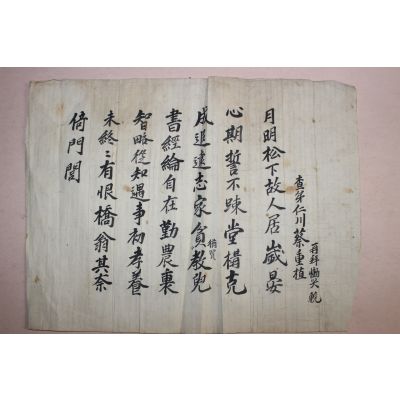 査弟仁川蔡重植
再拜慟哭輓
月明松下故人居歲晏
心期誓不踈堂構克
成追遠志家貧猶買敎兒
書經綸自在勤農裏
智略從知遇事初孝養
未終〻有恨橋翁其奈
倚門閭